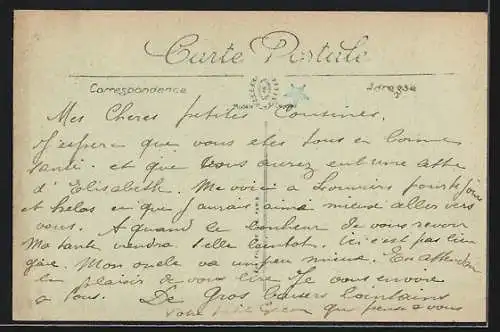 Carte Postale
Correspondence
Adresse
Mes Cheres petites Cousines.
J'espere que vous etes tous en bonne
santé. et que vous aurez eut une
d'Elisabeth. Me voici a Louviers pour 15 jours
et helas en que j'aurais aimé mieux aller vers
vous. A quand le bonheur de vous revoir
Ma tante viendra t'elle bientot. Ici c'est pas bien
gaie. Mon oncle va un peu mieux. En attendant
le plaisir de vous lire Je vous envoie
a tous. De Gros baisers lointains
Votre petit qui pense a vous